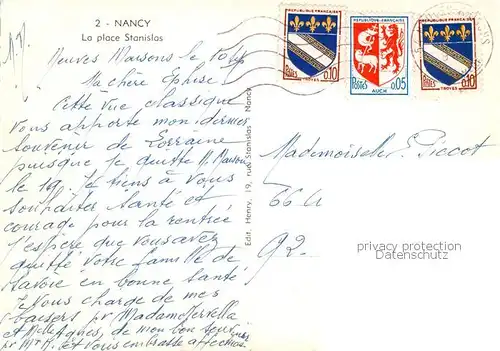 2 - NANCY
La place Stanislas
Neuves Maisons le
Ma chère
Cette vue classique
vous apporte mon dernier
souvenir de Lorraine
puisque je quitte N. Maisons
le 19. Je tiens à vous
souhaiter santé et
courage pour la rentrée
J'espère que vous avez
quitté votre famille de
Savoie en bonne santé
Je vous charge de mes
baisers pr Madame
et Melle Agnès, de mon bon souvenir
pr Mr et vous embrasse affectueu
Edit. Henry, 19, rue Stanislas - Nancy
REPUBLIQUE FRANÇAISE
POSTES TROYES 0,10
REPUBLIQUE FRANÇAISE
POSTES AUCH 0,05
REPUBLIQUE FRANÇAISE
POSTES TROYES 0,10
Mademoiselle E. Piccot
66 u
92
privacy protection
Datenschutz